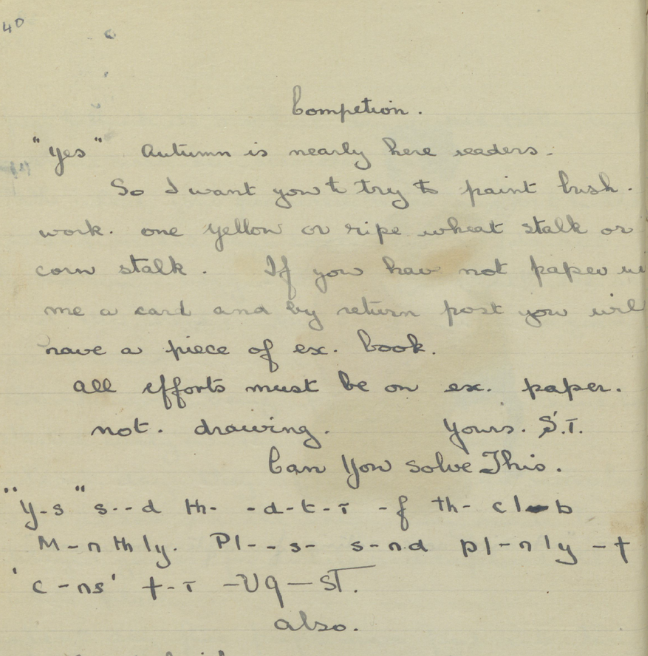 40
Competion.
"Yes" Autumn is nearly here readers.
So I want you to try to paint bush.
work. one yellow or ripe wheat stalk or
corn stalk. If you hav not paper
me a card and by return post you will
have a piece of ex. book.
all efforts must be on ex. paper.
not. drawing. Yours. S.T.
Can You solve This.
"Y-s" s--d th- -d-t-r -f th- cl-b
M-nthly. Pl--s- s-nd pl-nly -t
'c-ns' f-r -Ug-st.
also.